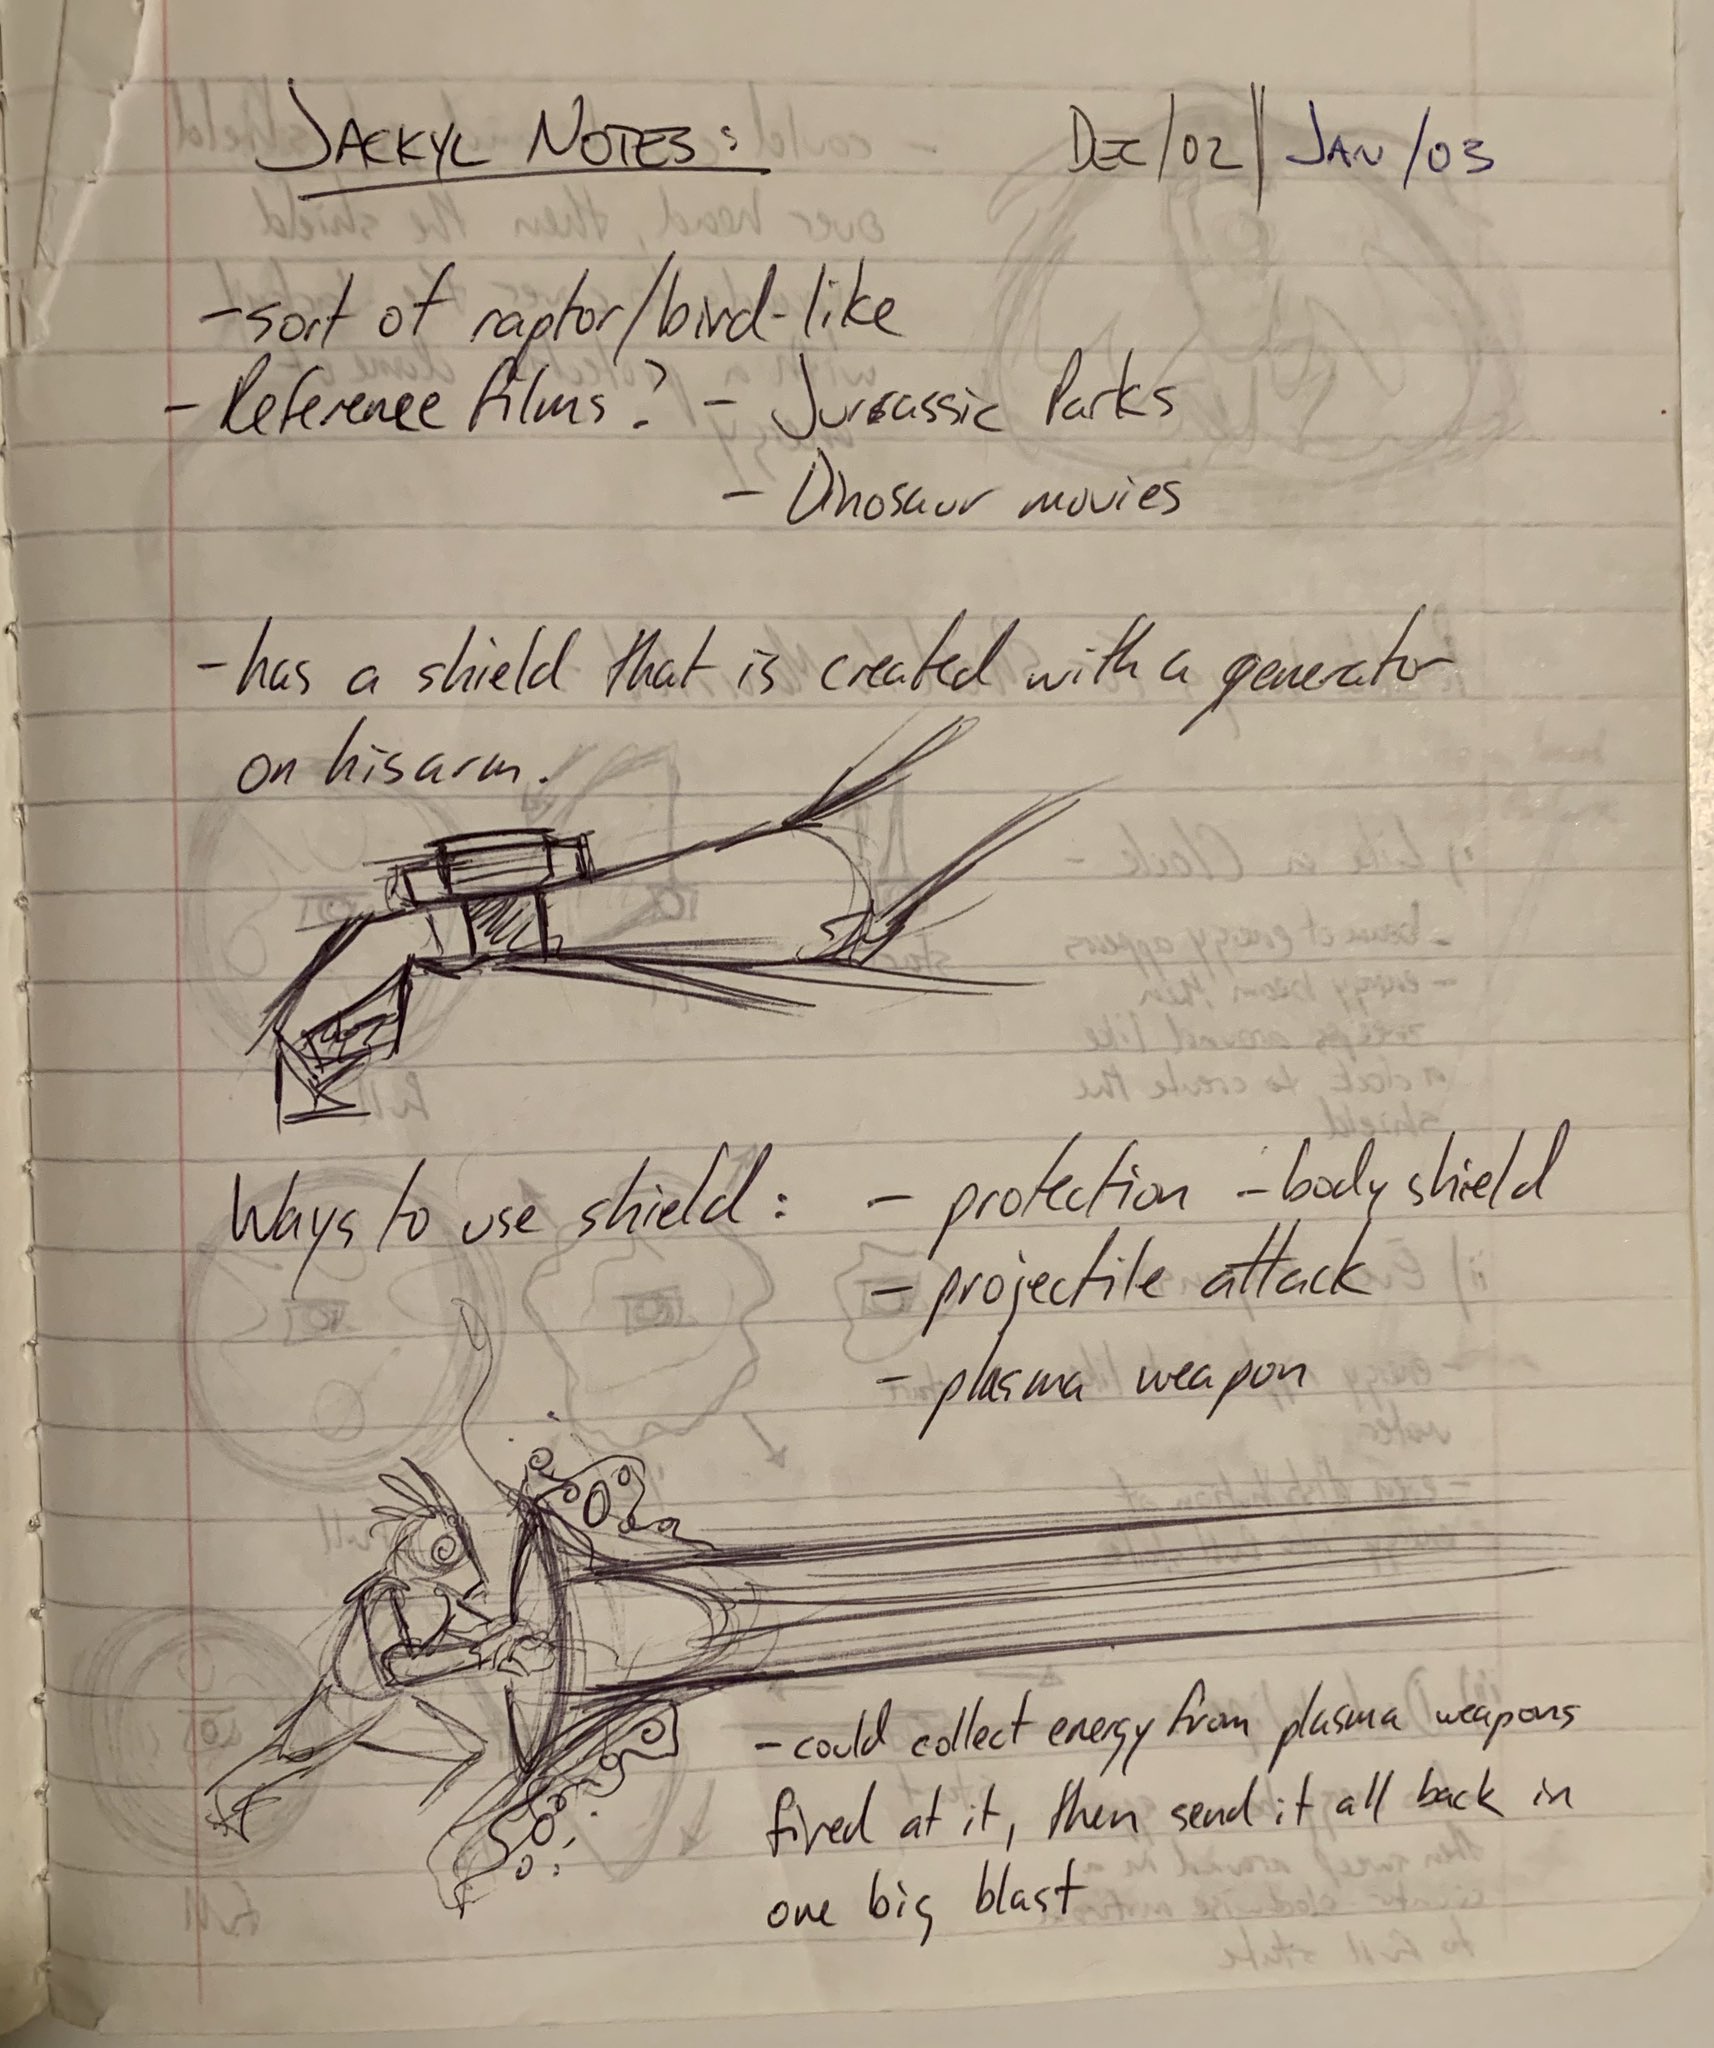 JACKYL NOTES: DEC/02 || JAN/03
- sort of raptor/bird-like
- Reference films? - Jurassic Parks
- Dinosaur movies
- has a shield that is created with a generator
on his arm.
Ways to use shield: - protection - body shield
- projectile attack
- plasma weapon
- could collect energy from plasma weapons
fired at it, then send it all back in
one big blast